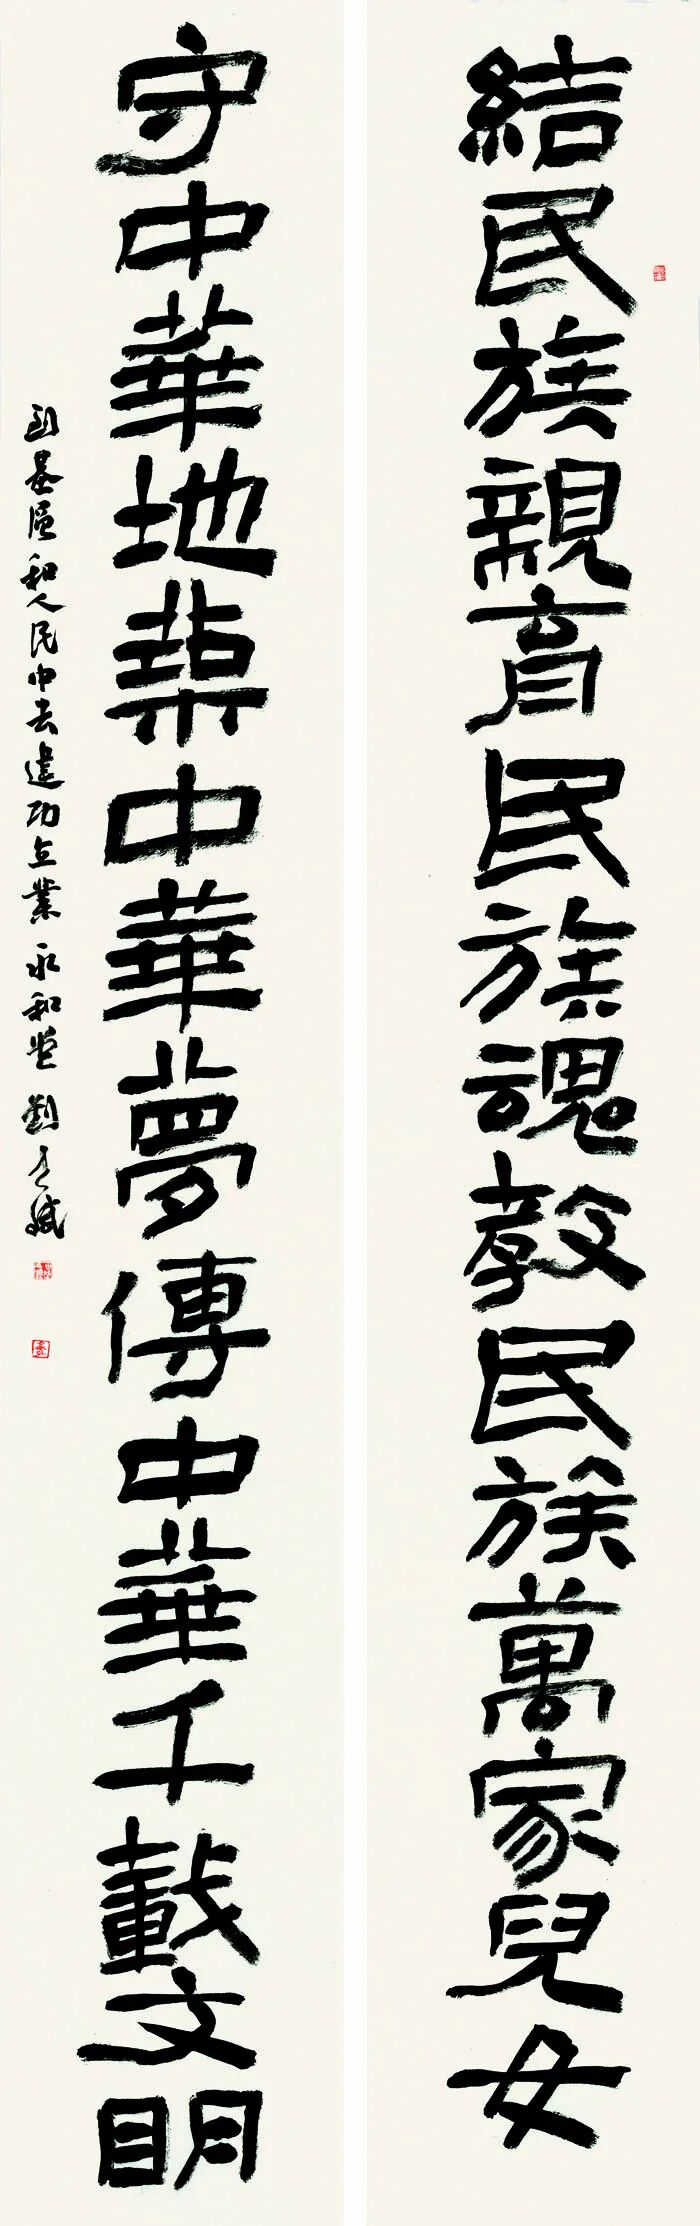 結民族親育民族魂教民族萬家兒女
守中華地築中華夢傳中華千載文明
到基層和人民中去建功立業 永和堂 劉